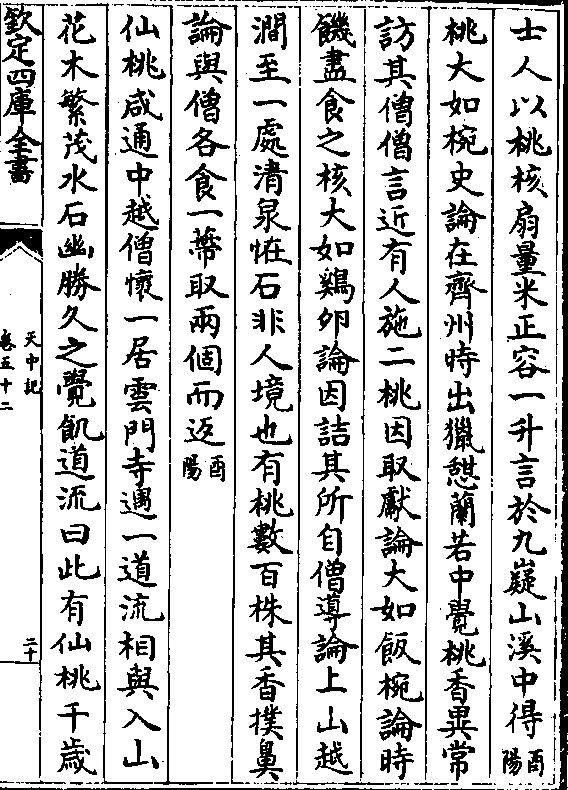 士人以桃核扇量米正容一升言於九嶷山溪中得酉陽
桃大如椀史論在齊州時出獵憇蘭若中覺桃香異常
訪其僧僧言近有人施二桃因取獻論大如飯椀論時
饑盡食之核大如鷄卵論因詰其所自僧導論上山越
澗至一處清泉恠石非人境也有桃數百株其香撲鼻
論與僧各食一蔕取兩個而返酉陽
仙桃咸通中越僧懷一居雲門寺遇一道流相與入山
花木繁茂水石幽勝久之覺飢道流曰此有仙桃千歳
欽定四庫全書
天中記
卷五十二
二十